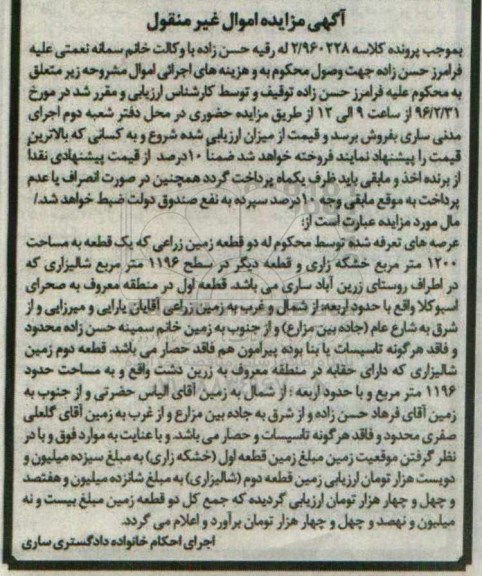 آگهی مزایده اموال غیر منقول
بموجب پرونده کلاسه ۲/۹۶۰۲۲۸ له رقیه حسن زاده با وکالت خانم سمانه نعمتی علیه
فرامرز حسن زاده جهت وصول محکوم به و هزینه های اجرائی اموال مشروحه زیر متعلق
به محکوم علیه فرامرز حسن زاده توقیف و توسط کارشناس ارزیابی و مقرر شد در مورخ
۹۶/۲/۳۱ از ساعت ۹ الی ۱۲ از طریق مزایده حضوری در محل دفتر شعبه دوم اجرای
مدنی ساری بفروش برسد و قیمت از میزان ارزیابی شده شروع و به کسانی که بالاترین
قیمت را پیشنهاد نمایند فروخته خواهد شد ضمناً ۱۰درصد از قیمت پیشنهادی نقداً
از برنده اخذ و مابقی باید ظرف یکماه پرداخت گردد همچنین در صورت انصراف یا عدم
پرداخت به موقع مابقی وجه ۱۰درصد سپرده به نفع صندوق دولت ضبط خواهد شد./
مال مورد مزایده عبارت است از:
عرصه های تعرفه شده توسط محکوم له دو قطعه زمین زراعی که یک قطعه به مساحت
۱۲۰۰ متر مربع خشکه زاری و قطعه دیگر در سطح ۱۱۹۶ متر مربع شالیزاری که
در اطراف روستای زرین آباد ساری می باشد. قطعه اول در منطقه معروف به صحرای
اسبوکلا واقع با حدود اربعه: از شمال و غرب به زمین زراعی آقایان یارایی و میرزایی و از
شرق به شارع عام (جاده بین مزارع) و از جنوب به زمین خانم سمینه حسن زاده محدود
و فاقد هرگونه تاسیسات یا بنا بوده پیرامون هم فاقد حصار می باشد. قطعه دوم زمین
شالیزاری که دارای حقابه در منطقه معروف به زرین دشت واقع و به مساحت حدود
۱۱۹۶ متر مربع و با حدود اربعه : از شمال به زمین آقای الیاس حضرتی و از جنوب به
زمین آقای فرهاد حسن زاده و از شرق به جاده بین مزارع و از غرب به زمین آقای گلعلی
صفری محدود و فاقد هرگونه تاسیسات و حصار می باشد. و با عنایت به موارد فوق و با در
نظر گرفتن موقعیت زمین مبلغ زمین قطعه اول (خشکه زاری) به مبلغ سیزده میلیون و
دویست هزار تومان ارزیابی زمین قطعه دوم (شالیزاری) به مبلغ شانزده میلیون و هفتصد
و چهل و چهار هزار تومان ارزیابی گردیده که جمع کل دو قطعه زمین مبلغ بیست و نه
میلیون و نهصد و چهل و چهار هزار تومان برآورد و اعلام می گردد.
اجرای احکام خانواده دادگستری ساری